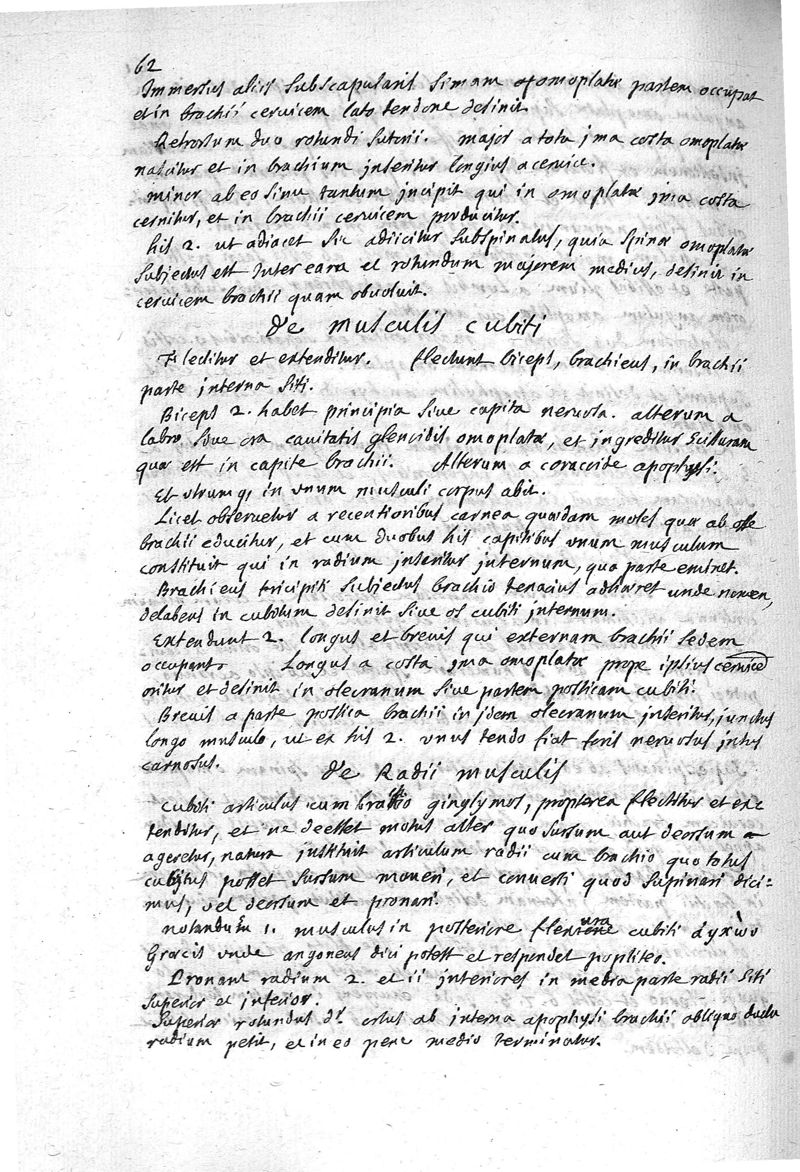 62
Immersus aliis subscapularis simam omoplatæ partem occupat
et in brachii ceruicem lato tendone desinit.
Retrorsum duo rotundi sutorii. major a tota jma costa omoplatæ
nascitur et in brachium jnseritur longius a ceruice.
minor ab eo sinu tantum jncipit qui in omoplatæ jma costa
cernitur, et in brachii ceruicem producitur.
his 2. ut adiacet sic adiicitur subspinatus, quia spinæ omoplatæ
subjectus est Inter eam et rotundum majorem medius, desinit in
ceruicem brachii quam obuoluit.
de musculis cubiti
Flectitur et extenditur. flectunt biceps, brachieus, in brachii
parte interna siti.
Biceps 2. habet principia siue capita neruosa. alterum a
labro siue ora cauitatis glenoidis omoplatæ, et ingreditur scissuram
quæ est in capite brachii. Alterum a coracoide apophysi.
Et utrumq, in vnum musculi corpus abit.
Licet obseruetur a recentioribus carnea quædam moles quæ ab osse
brachii educitur, et cum duobus his capitibus vnum musculum
constituit qui in radium jnseritur jnternum, qua parte eminet.
Brachieus bicipiti subjectus brachio tenacius adhæret unde nomen,
delabens in cubitum desinit siue os cubiti jnternum.
Extendunt 2. longus et breuis qui externam brachii sedem
occupant. Longus a costa jma omoplatæ prope ipsius ceruicem
oritur et desinit in olecranum siue partem posticam cubiti.
Breuis a parte postica brachii in jdem olecranum jnseritur, junctus
longo musculo, ut ex his 2. vnus tendo fiat foris neruosus jntus
carnosus.
de Radii musculis
Cubiti articulus cum brachio ginglymos, propterea flectitur et ex-
tenditur, et ne deesset motus alter quo sursum aut deorsum a-
ageretur, natura jnstituit articulum radii cum brachio quo totus
cubitus posset sursum moueri, et conuerti quod supinari dici-
mus, vel deorsum et pronari.
notandum 1. musculus in posteriore flexura cubiti ἀγκὼν
Græcis vnde angoneus dici potest et respondet popliteo.
Pronant radium 2. et ii jnteriores in media parte radii siti
superior et inferior.
Superior rotundus dr. ortus ab interna apophysi brachii obliquo ductu
radium petit, et in eo pene medio terminatur.